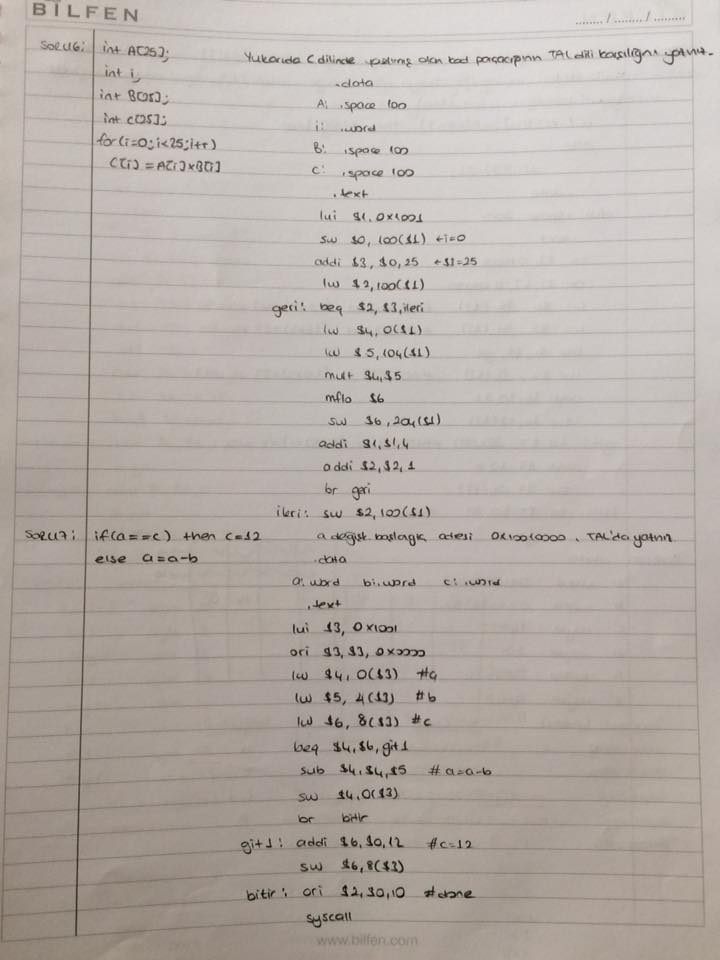 BİLFEN
......../......../.........
Soru6: int A[25]; Yukarıda C dilinde yazılmış olan kod parçacığının TAL dili karşılığını yazınız.
int i; .data
int B[25]; A: .space 100
int C[25]; i: .word
for(i=0;i<25;i++) B: .space 100
C[i]=A[i]×B[i] C: .space 100
.text
lui $1, 0x1001
sw $0, 100($1) ←i=0
addi $3, $0, 25 ←$3=25
lw $2, 100($1)
geri: beq $2, $3, ileri
lw $4, 0($1)
lw $5, 104($1)
mult $4, $5
mflo $6
sw $6, 204($1)
addi $1, $1, 4
addi $2, $2, 1
br geri
ileri: sw $2, 100($1)
Soru7: if(a==c) then c=12 a değişk. başlangıç adresi 0x10010000, TAL'da yazınız
else a=a-b .data
a: .word b: .word c: .word
.text
lui $3, 0x1001
ori $3, $3, 0x0000
lw $4, 0($3) #a
lw $5, 4($3) #b
lw $6, 8($3) #c
beq $4, $6, git1
sub $4, $4, $5 #a=a-b
sw $4, 0($3)
br bitir
git1: addi $6, $0, 12 #c=12
sw $6, 8($3)
bitir: ori $2, $0, 10 #done
syscall
www.bilfen.com